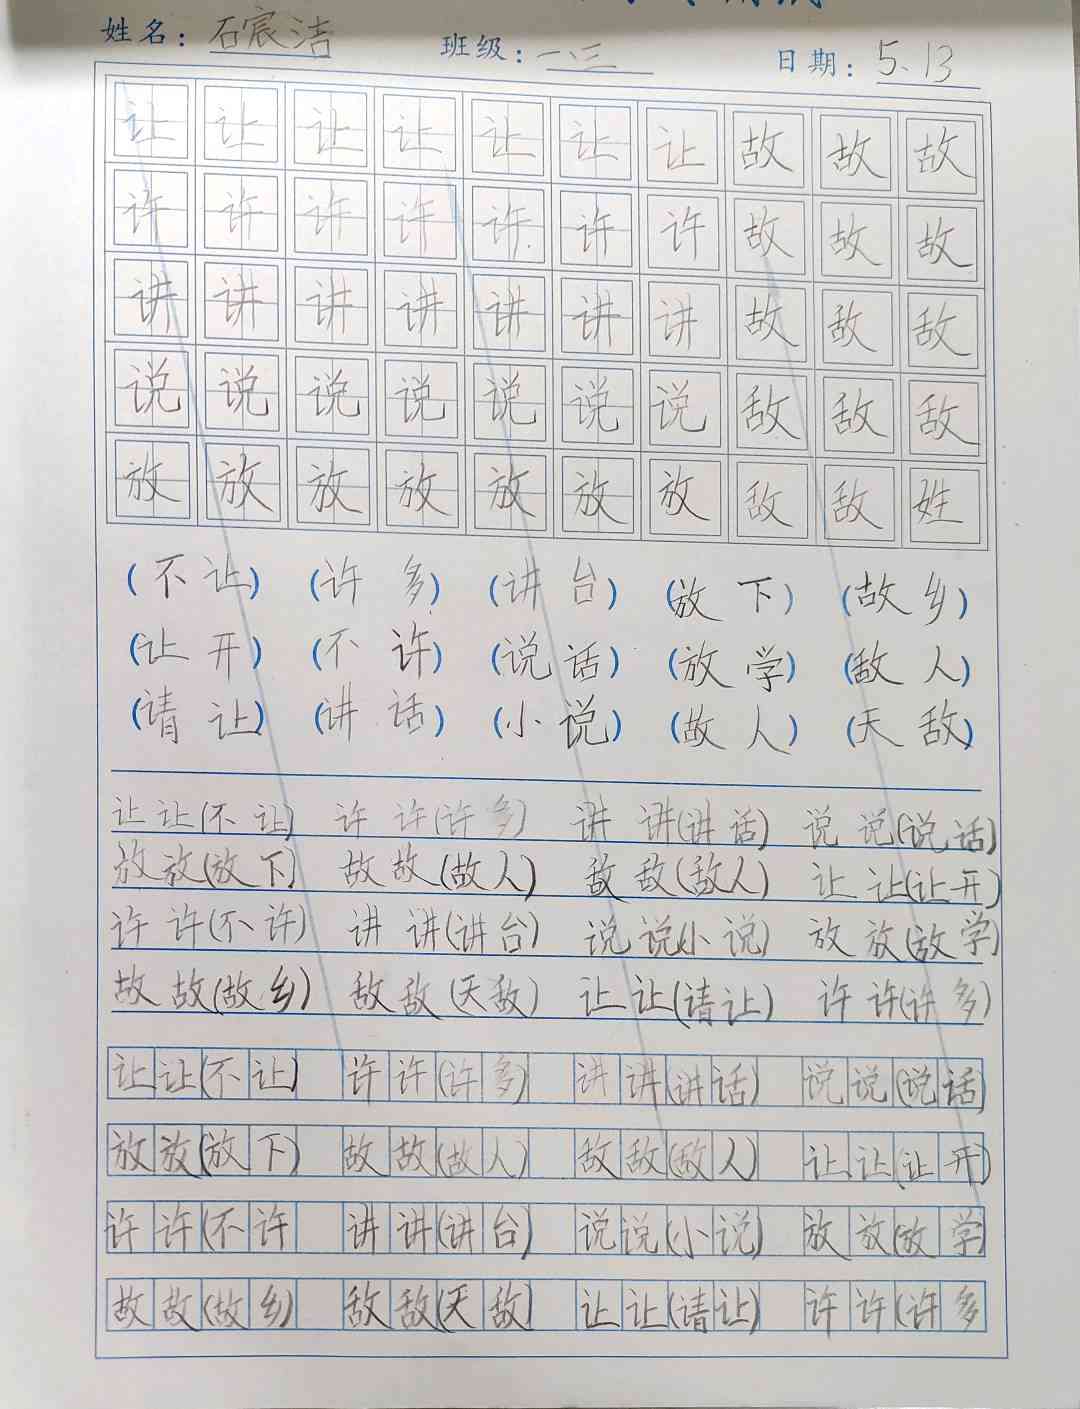 姓名：石宸洁 班级：一、三 日期：5.13
让 让 让 让 让 让 让 故 故 故
许 许 许 许 许 许 许 故 故 故
讲 讲 讲 讲 讲 讲 讲 故 敌 敌
说 说 说 说 说 说 说 敌 敌 敌
放 放 放 放 放 放 放 敌 敌 姓
(不让) (许多) (讲台) (放下) (故乡)
(让开) (不许) (说话) (放学) (敌人)
(请让) (讲话) (小说) (故人) (天敌)
让让(不让) 许许(许多) 讲讲(讲话) 说说(说话)
放放(放下) 故故(故人) 敌敌(敌人) 让让(让开)
许许(不许) 讲讲(讲台) 说说(小说) 放放(放学)
故故(故乡) 敌敌(天敌) 让让(请让) 许许(许多)
让让(不让) 许许(许多) 讲讲(讲话) 说说(说话
放放(放下) 故故(故人) 敌敌(敌人) 让让(让开)
许许(不许 讲讲(讲台) 说说(小说) 放放(放学
故故(故乡) 敌敌(天敌 让让(请让) 许许(许多